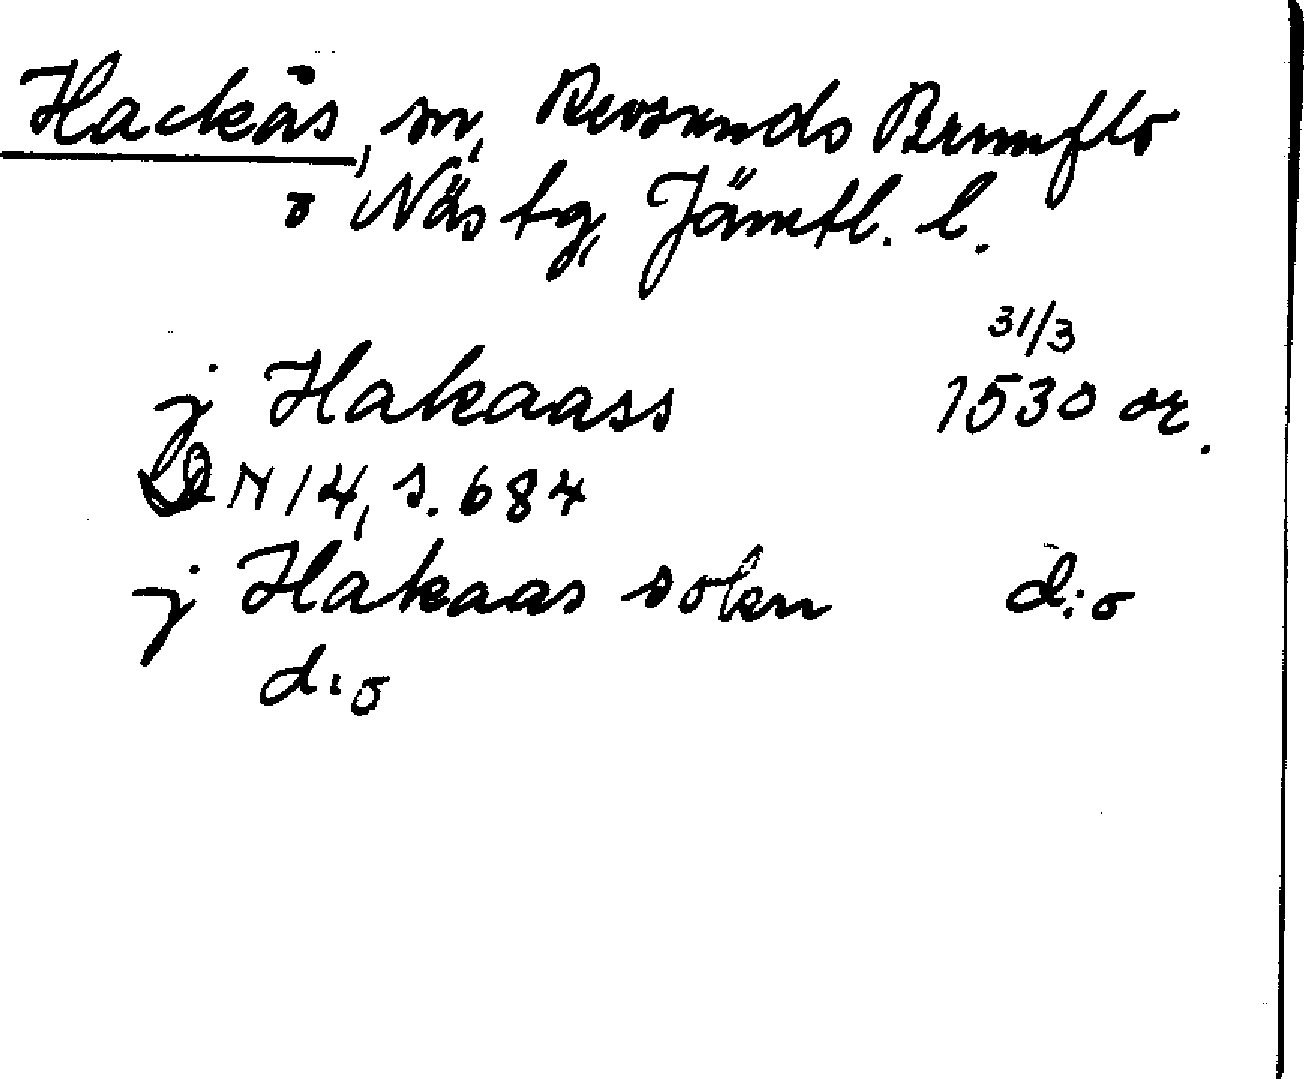 Hackås, sn, Revsunds Brunflo
o Näs tg, Jämtl. l.
31/3
j Hakaass 1530 or.
DN 14, s. 684
j Hakaas sokn d:o
d:o